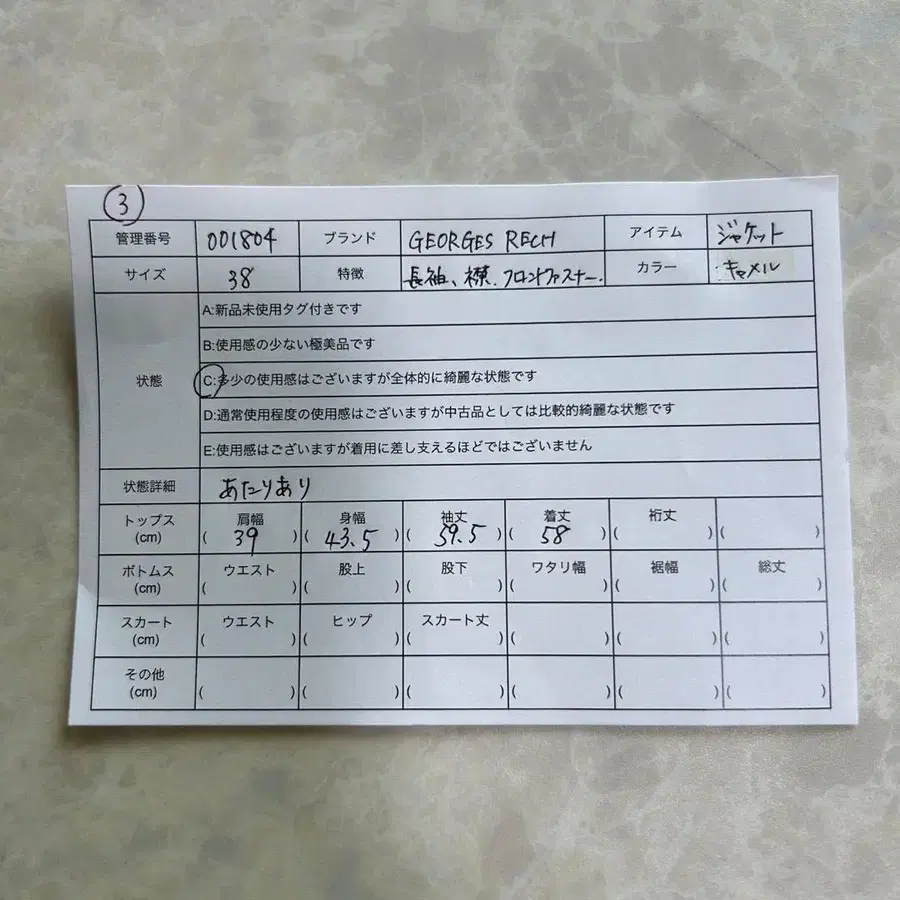 3
管理番号 001804 ブランド GEORGES RECH アイテム ジャケット
サイズ 38 特徴 長袖、襟、フロントファスナー、 カラー キャメル
A:新品未使用タグ付きです
B:使用感の少ない極美品です
状態 C:多少の使用感はございますが全体的に綺麗な状態です
D:通常使用程度の使用感はございますが中古品としては比較的綺麗な状態です
E:使用感はございますが着用に差し支えるほどではございません
状態詳細 あたりあり
トップス 肩幅 身幅 袖丈 着丈 裄丈
(cm) (39) (43.5) (59.5) (58) ( ) ( )
ボトムス ウエスト 股上 股下 ワタリ幅 裾幅 総丈
(cm) ( ) ( ) ( ) ( ) ( ) ( )
スカート ウエスト ヒップ スカート丈
(cm) ( ) ( ) ( ) ( ) ( ) ( )
その他
(cm) ( ) ( ) ( ) ( ) ( ) ( )